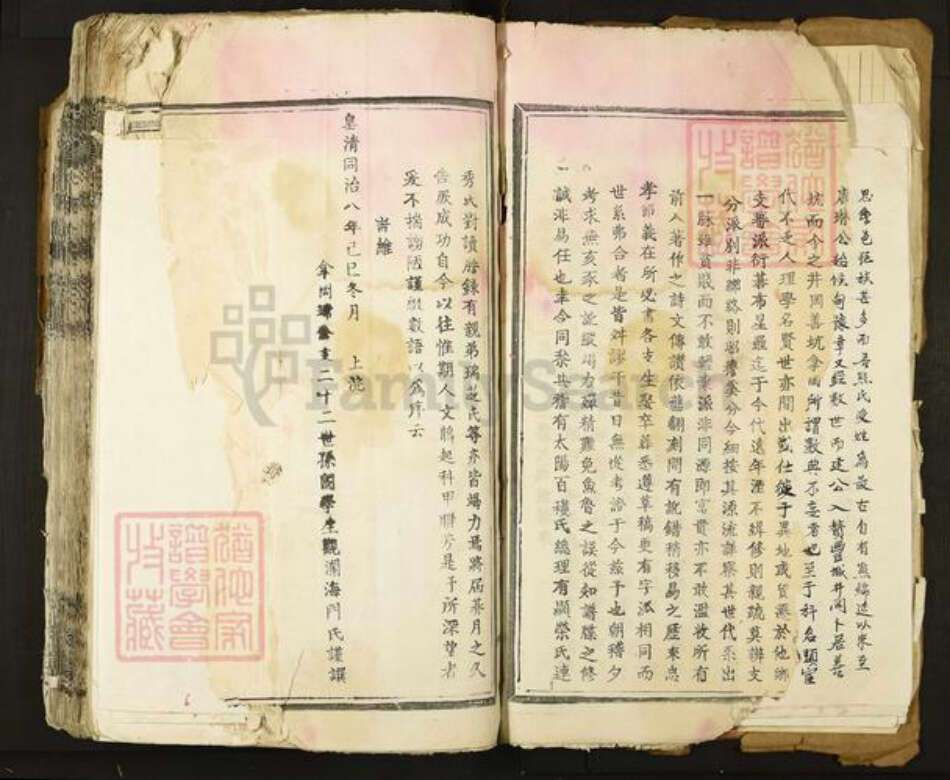 思舊邑征族甚多而吾熊氏受姓為最古自有熊編造以來至
康公始候甸豫章又經數世而建公入贅豐城井岡卜居善
坑而今之井岡善坑拿岡所謂數典不忘者也至于科名顯宦
代不乏人理學名賢世亦間出或仕徙于異地或貿遷於他鄉
支普派衍碁布星羅迄于今代遠年湮不緝修則親疏莫辨支
分派別非聯絡則分今細按其源流詳察其世代系出
一脉雖貧賤而不敢輕棄派非同源即富貴亦不敢濫收所有
前人著作之詩文傳讚依舊翻刻間有訛錯稍移易之歷來忠
孝節義在所必書各支生娶卒葬悉遵草稿更有字派相同而
世系弗合者是皆昔日無從考證于今茲于也朝稽夕
考求無亥豕之訛竭力殫精難免魚魯之誤從知譜牒之修
誠非易任也幸今同共稽有太陽百禩氏總理有顯榮氏連
秀氏對讀謄錄有親弟瑞芝氏等亦皆竭力焉將屆朞月之久
告厥成功自今以往惟期人文蔚起科甲聯芳是予所深望者
爰不揣謭陋謹綴數語以為序云
時維
皇清同治八年己巳冬月 上浣
拿岡二十二世孫國學生觀瀾海門氏謹譔
譜學會
收藏
FamilySearch